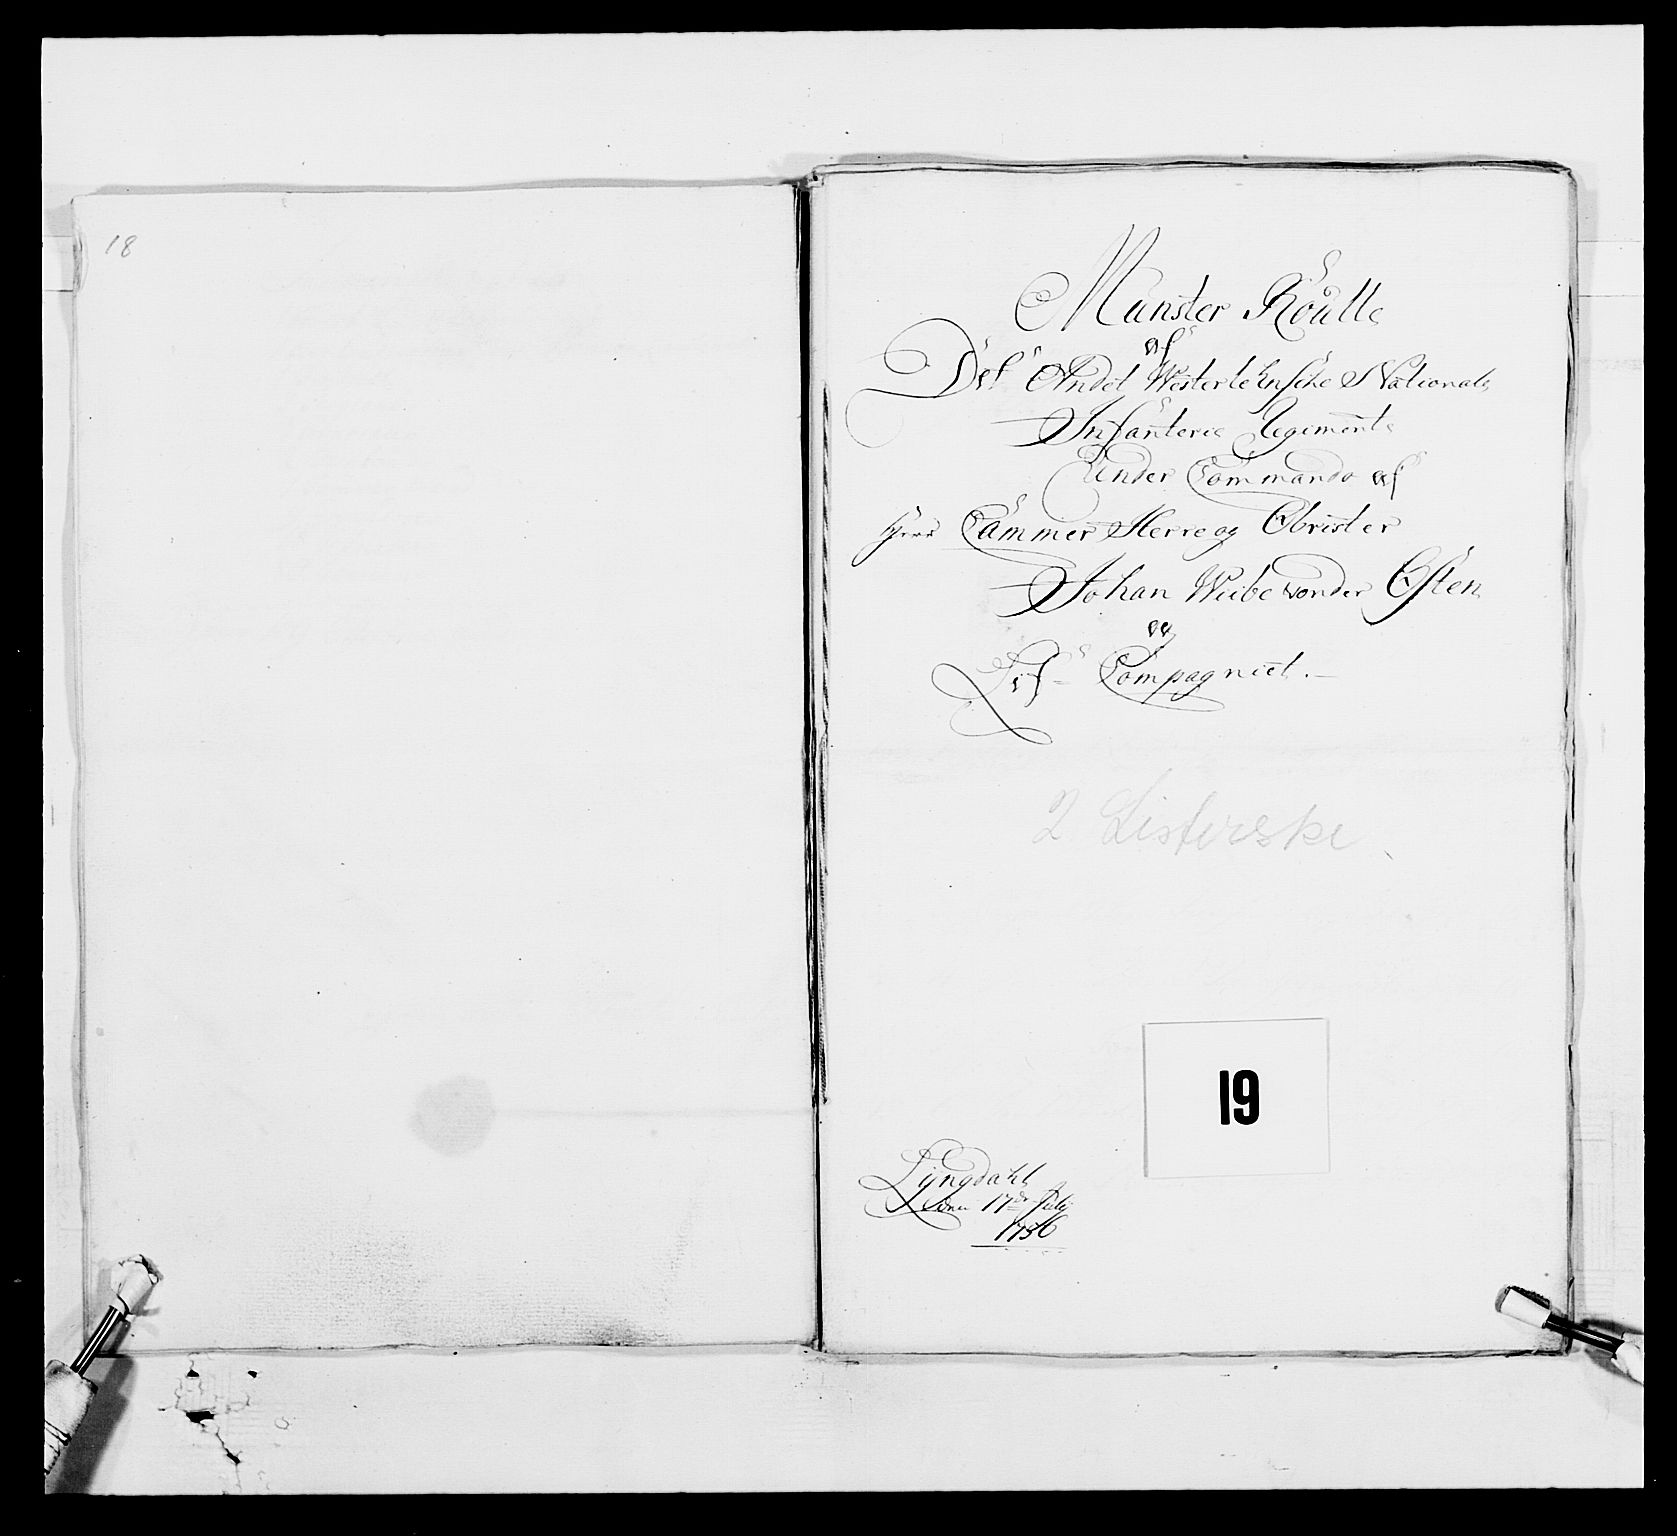 18
Munster Roulle
af
Det Andet Westerlehnske National
Infanterie Regiment
Under Commando af
Herr Cammer Herre og Obrister
Johan Wibe vonder Osten
og
Compagniet.
2 Listerske
19
Lyngdahl
den 17de July
1756